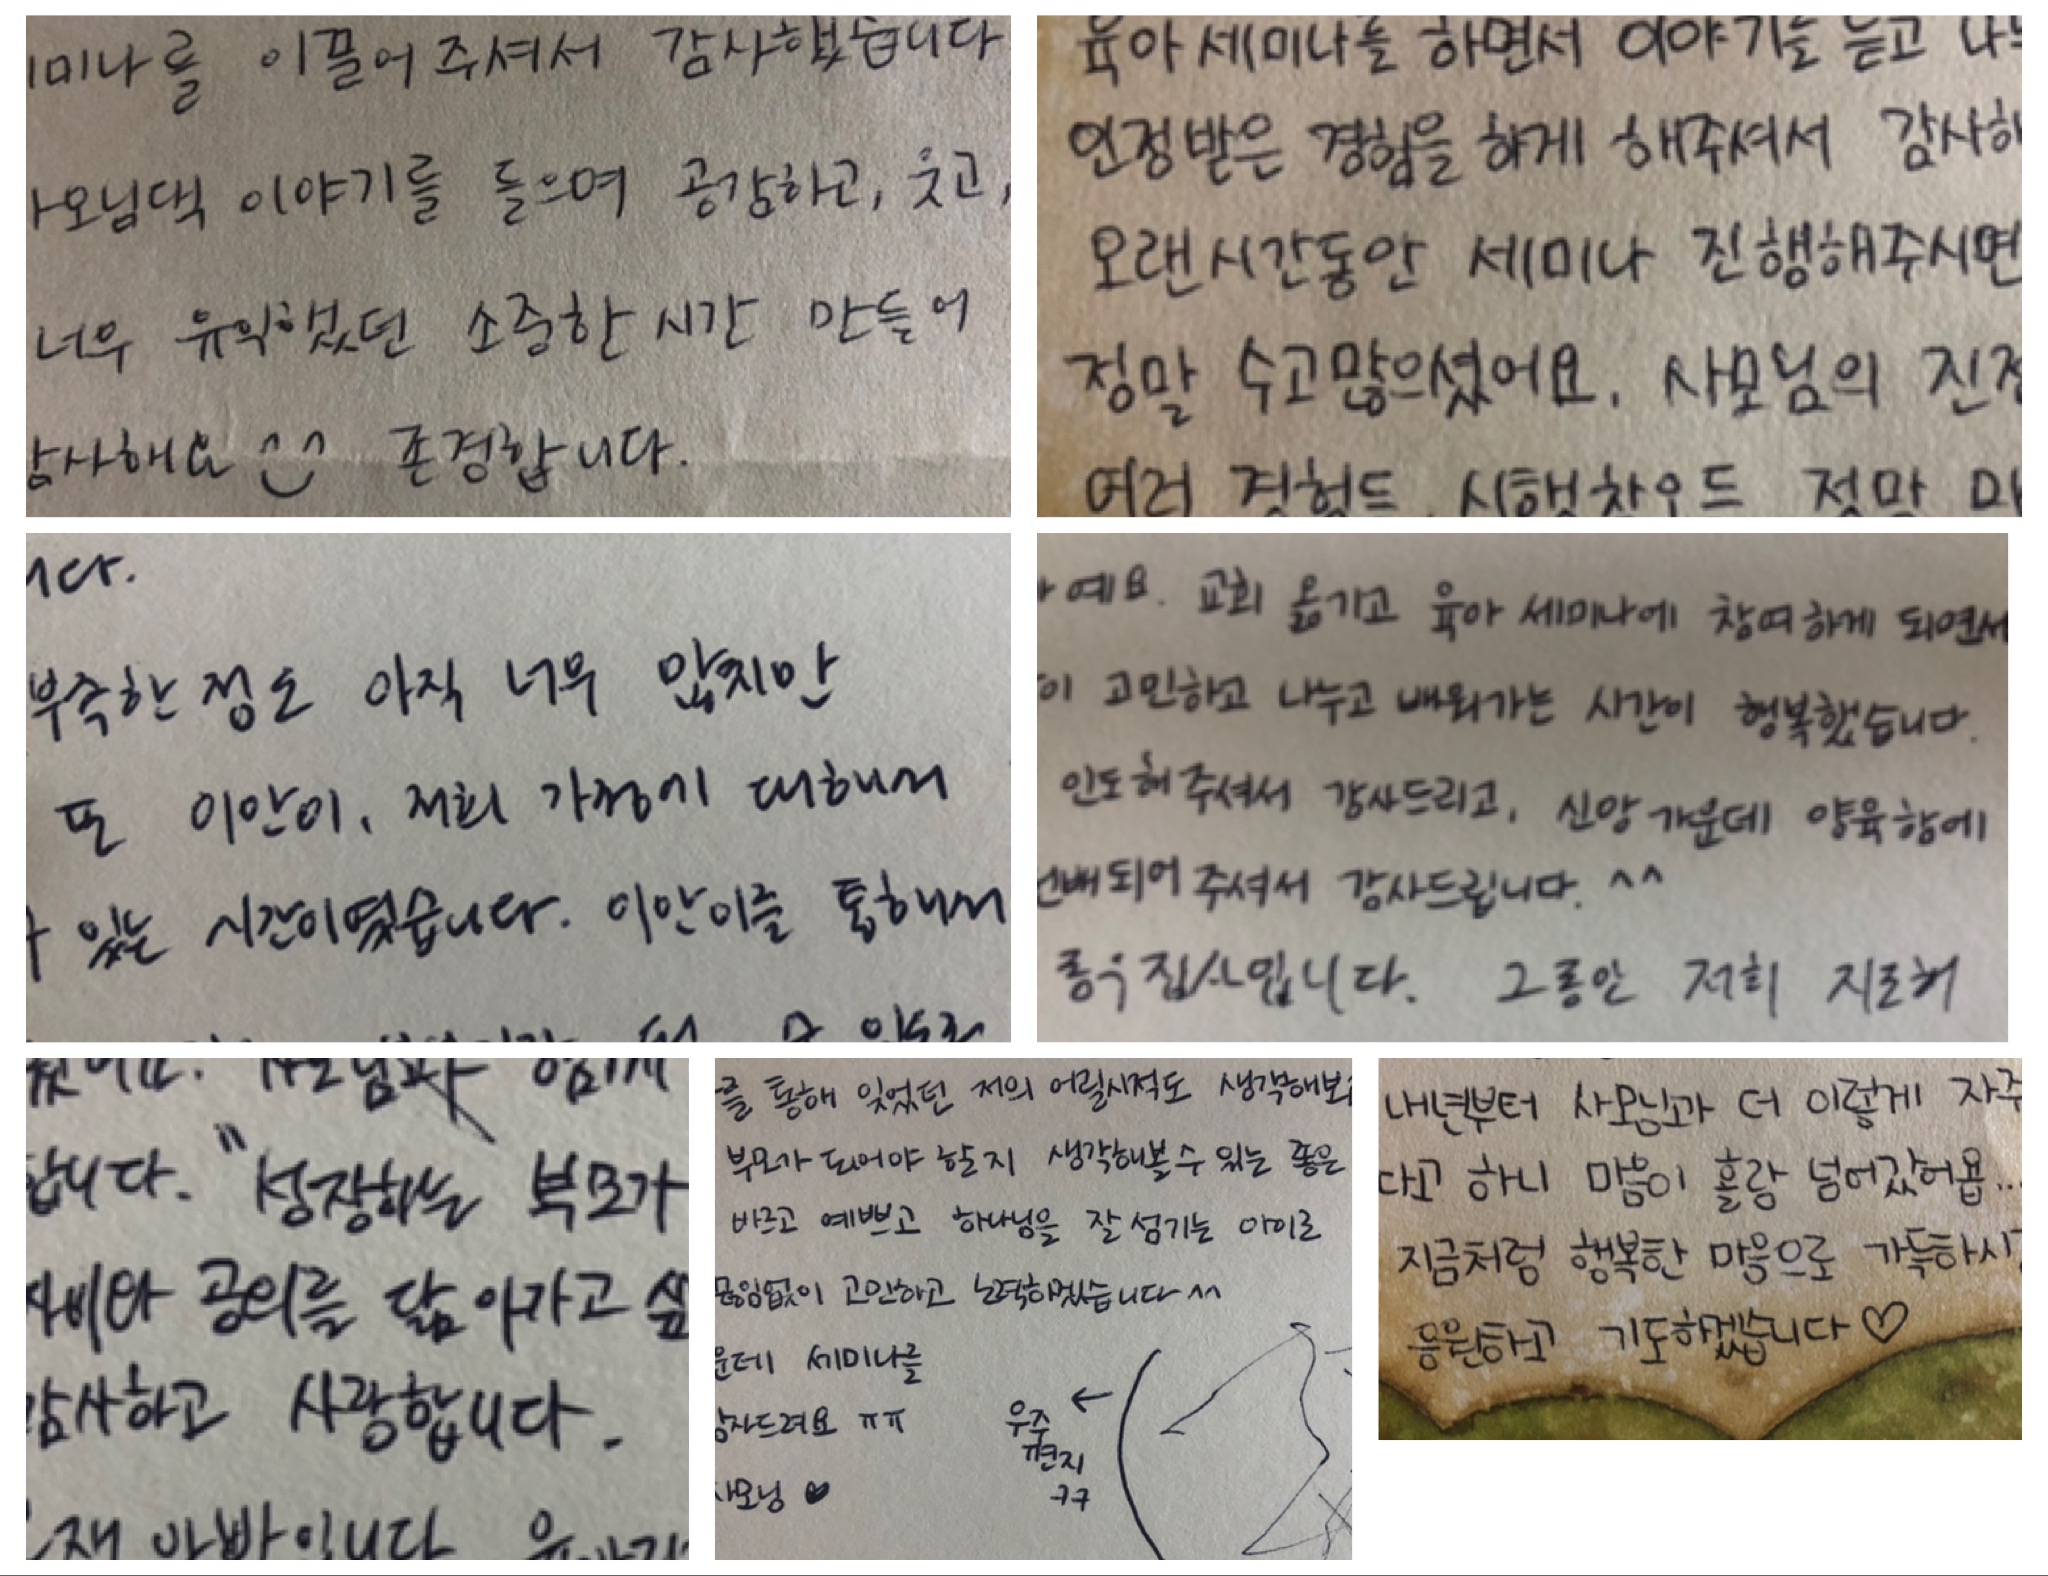 세미나를 이끌어주셔서 감사했습니다
사모님댁 이야기를 들으며 공감하고, 웃고,
너무 유익했던 소중한 시간 만들어
감사해요 존경합니다.
육아세미나를 하면서 이야기를 듣고
인정받은 경험을 하게 해주셔서 감사해
오랜시간동안 세미나 진행해주시면
정말 수고많으셨어요. 사모님의
여러 정말
니다.
부족한 점도 아직 너무 많지만
또 이안이, 저희 가정에 대해서
있는 시간이였습니다. 이안이를 통해서
예요. 교회 옮기고 육아 세미나에 참여하게 되면서
이 고민하고 나누고 배워가는 시간이 행복했습니다.
인도해주셔서 감사드리고, 신앙가운데 양육함에
선배되어주셔서 감사드립니다. ^^
집사입니다. 그동안 저희
사모님과
합니다. "성장하는 부모가
자비와 공의를 닮아가고 싶
감사하고 사랑합니다.
아빠입니다
를 통해 잊었던 저의 어릴시적도 생각해보고
부모가 되어야 할지 생각해볼수있는 좋은
바르고 예쁘고 하나님을 잘 섬기는 아이로
끊임없이 고민하고 노력하겠습니다^^
운데 세미나를
감사드려요 ㅠㅠ
사모님 ♥
우주
편지
ㅋㅋ
←
내년부터 사모님과 더 이렇게 자주
다고 하니 마음이 홀랑 넘어갔어욥...
지금처럼 행복한 마음으로 가득하시길
응원하고 기도하겠습니다♡